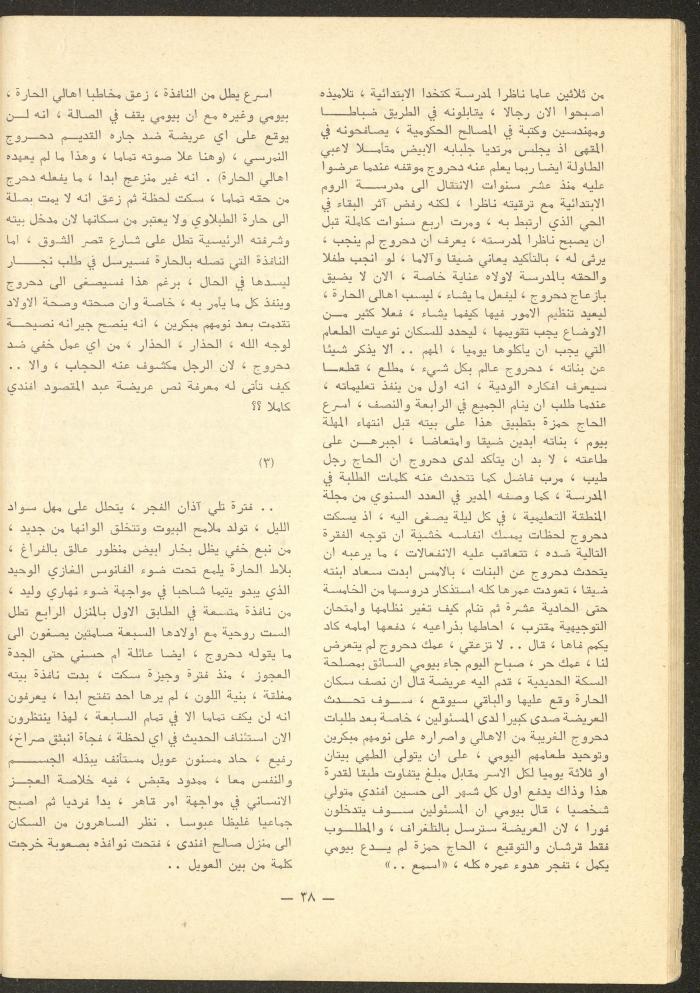 من ثلاثين عاما ناظرا لمدرسة كتخدا الابتدائية ، تلاميذه
اصبحوا الان رجالا ، يتابلونه في الطريق ضباطا
ومهندسين وكتبة في المصالح الحكومية ، يصافحونه في
المقهى اذ يجلس مرتديا جلبابه الابيض متأملا لاعبي
الطاولة ايضا ربما يعلم عنه دحروج موقفه عندما عرضوا
عليه منذ عشر سنوات الانتقال الى مدرسة الروم
الابتدائية مع ترقيته ناظرا ، لكنه رفض آثر البقاء في
الحي الذي ارتبط به ، ومرت اربع سنوات كاملة قبل
ان يصبح ناظرا لمدرسته ، يعرف ان دحروج لم ينجب ،
يرثى له ، بالتأكيد يعاني ضيقا وآلاما ، لو انجب طفلا
والحقه بالمدرسة لاولاه عناية خاصة ، الان لا يضيق
بازعاج دحروج ، ليفعل ما يشاء ، ليسب اهالى الحارة ،
ليعيد تنظيم الامور فيها كيفما يشاء ، فعلا كثير من
الاوضاع يجب تقويمها ، ليحدد للسكان نوعيات الطعام
التي يجب ان يأكلوها يوميا ، المهم .. الا يذكر شيئا
عن بناته ، دحروج عالم بكل شيء ، مطلع ، قطعا
سيعرف افكاره الودية ، انه اول من ينفذ تعليماته ،
عندما طلب ان ينام الجميع في الرابعة والنصف ، اسرع
الحاج حمزة بتطبيق هذا على بيته قبل انتهاء المهلة
بيوم ، بناته ابدين ضيقا وامتعاضا ، اجبرهن على
طاعته ، لا بد ان يتأكد لدى دحروج ان الحاج رجل
طيب ، مرب فاضل كما تتحدث عنه كلمات الطلبة في
المدرسة ، كما وصفه المدير في العدد السنوي من مجلة
المنطقة التعليمية ، في كل ليلة يصغى اليه ، اذ يسكت
دحروج لحظات يمسك انفاسه خشية ان توجه الفقرة
التالية ضده ، تتعاقب عليه الانفعالات ، ما يرعبه ان
يتحدث دحروج عن البنات ، بالامس ابدت سعاد ابنته
ضيقا ، تعودت عمرها كله استذكار دروسها من الخامسة
حتى الحادية عشرة ثم تنام كيف تغير نظامها وامتحان
التوجيهية مقترب ، احاطها بذراعيه ، دفعها امامه كاد
يكمم فاها ، قال .. لا تزعقي ، عمك دحروج لم يتعرض
لنا ، عمك حر ، صباح اليوم جاء بيومي السائق بمصلحة
السكة الحديدية ، قدم اليه عريضة قال ان نصف سكان
الحارة وقع عليها والباقي سيوقع ، سوف تحدث
العريضة صدى كبيرا لدى المسئولين ، خاصة بعد طلبات
دحروج الغريبة من الاهالي واصراره على نومهم مبكرين
وتوحيد طعامهم اليومي ، على ان يتولى الطهي بيتان
او ثلاثة يوميا لكل الاسر مقابل مبلغ يتفاوت طبقا لقدرة
هذا وذاك يدفع اول كل شهر الى حسين افندي متولي
شخصيا ، قال بيومي ان المسئولين سوف يتدخلون
فورا ، لان العريضة سترسل بالتلغراف ، والمطلوب
فقط قرشان والتوقيع ، الحاج حمزة لم يدع بيومي
يكمل ، تفجر هدوء عمره كله ، «اسمع ..»
اسرع يطل من النافذة ، زعق مخاطبا اهالي الحارة ،
بيومي وغيره مع ان بيومي يقف في الصالة ، انه لن
يوقع على اي عريضة ضد جاره القديم دحروج
النمرسي ، (وهنا علا صوته تماما ، وهذا ما لم يعهده
اهالي الحارة) . انه غير منزعج ابدا ، ما يفعله دحرج
من حقه تماما ، سكت لحظة ثم زعق انه لا يمت بصلة
الى حارة الطبلاوي ولا يعتبر من سكانها لان مدخل بيته
وشرفته الرئيسية تطل على شارع قصر الشوق ، اما
النافذة التي تصله بالحارة فسيرسل في طلب نجار
ليسدها في الحال ، برغم هذا فسيصغى الى دحروج
وينفذ كل ما يأمر به ، خاصة وان صحته وصحة الاولاد
تقدمت بعد نومهم مبكرين ، انه ينصح جيرانه نصيحة
لوجه الله ، الحذار ، الحذار ، من اي عمل خفي ضد
دحروج ، لان الرجل مكشوف عنه الحجاب ، والا ..
كيف تأتى له معرفة نص عريضة عبد المقصود افندي
كاملا ؟؟
(٣)
.. فترة تلي آذان الفجر ، يتحلل على مهل سواد
الليل ، تولد ملامح البيوت وتتخلق الوانها من جديد ،
من نبع خفي يظل بخار ابيض منظور عالق بالفراغ ،
بلاط الحارة يلمع تحت ضوء الفانوس الغازي الوحيد
الذي يبدو يتيما شاحبا في مواجهة ضوء نهاري وليد ،
من نافذة متسعة في الطابق الاول بالمنزل الرابع تطل
الست روحية مع اولادها السبعة صامتين يصغون الى
ما يقوله دحروج ، ايضا عائلة ام حسني حتى الجدة
العجوز ، منذ فترة وجيزة سكت ، بدت نافذة بيته
مغلقة ، بنية اللون ، لم يرها احد تفتح ابدا ، يعرفون
انه لن يكف تماما الا في تمام السابعة ، لهذا ينتظرون
الان استئناف الحديث في اي لحظة ، فجأة انبثق صراخ،
رفيع ، حاد مسنون عويل مستأنف يبذله الجسم
والنفس معا ، ممدود مقبض ، فيه خلاصة العجز
الانساني في مواجهة امر قاهر ، بدا فرديا ثم اصبح
جماعيا غليظا عبوسا . نظر الساهرون من السكان
الى منزل صالح افندى ، فتحت نوافذه بصعوبة خرجت
كلمة من بين العويل ..
— ٣٨ —